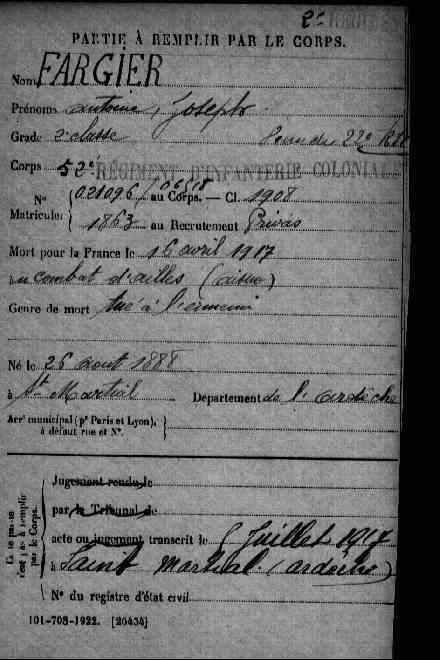 PARTIE À REMPLIR PAR LE CORPS.
Nom FARGIER
Prénoms antoine, Joseph
Grade 2e classe
Corps 52e RÉGIMENT D'INFANTERIE COLONIALE
N° 021096 / au Corps. — Cl. 1908
Matricule: 1863 au Recrutement Privas
Mort pour la France le 16 avril 1917
au combat d'ailles (aisne)
Genre de mort tué à l'ennemi
Né le 26 aout 1888
à St Martial Département de l'ardèche
Arrt municipal (pr Paris et Lyon),
à défaut rue et N°.
Jugement rendu le
par le Tribunal de
acte ou jugement transcrit le 5 Juillet 1917
à Saint Martial (ardèche)
N° du registre d'état civil
par le Corps.
101-708-1922. [26434]